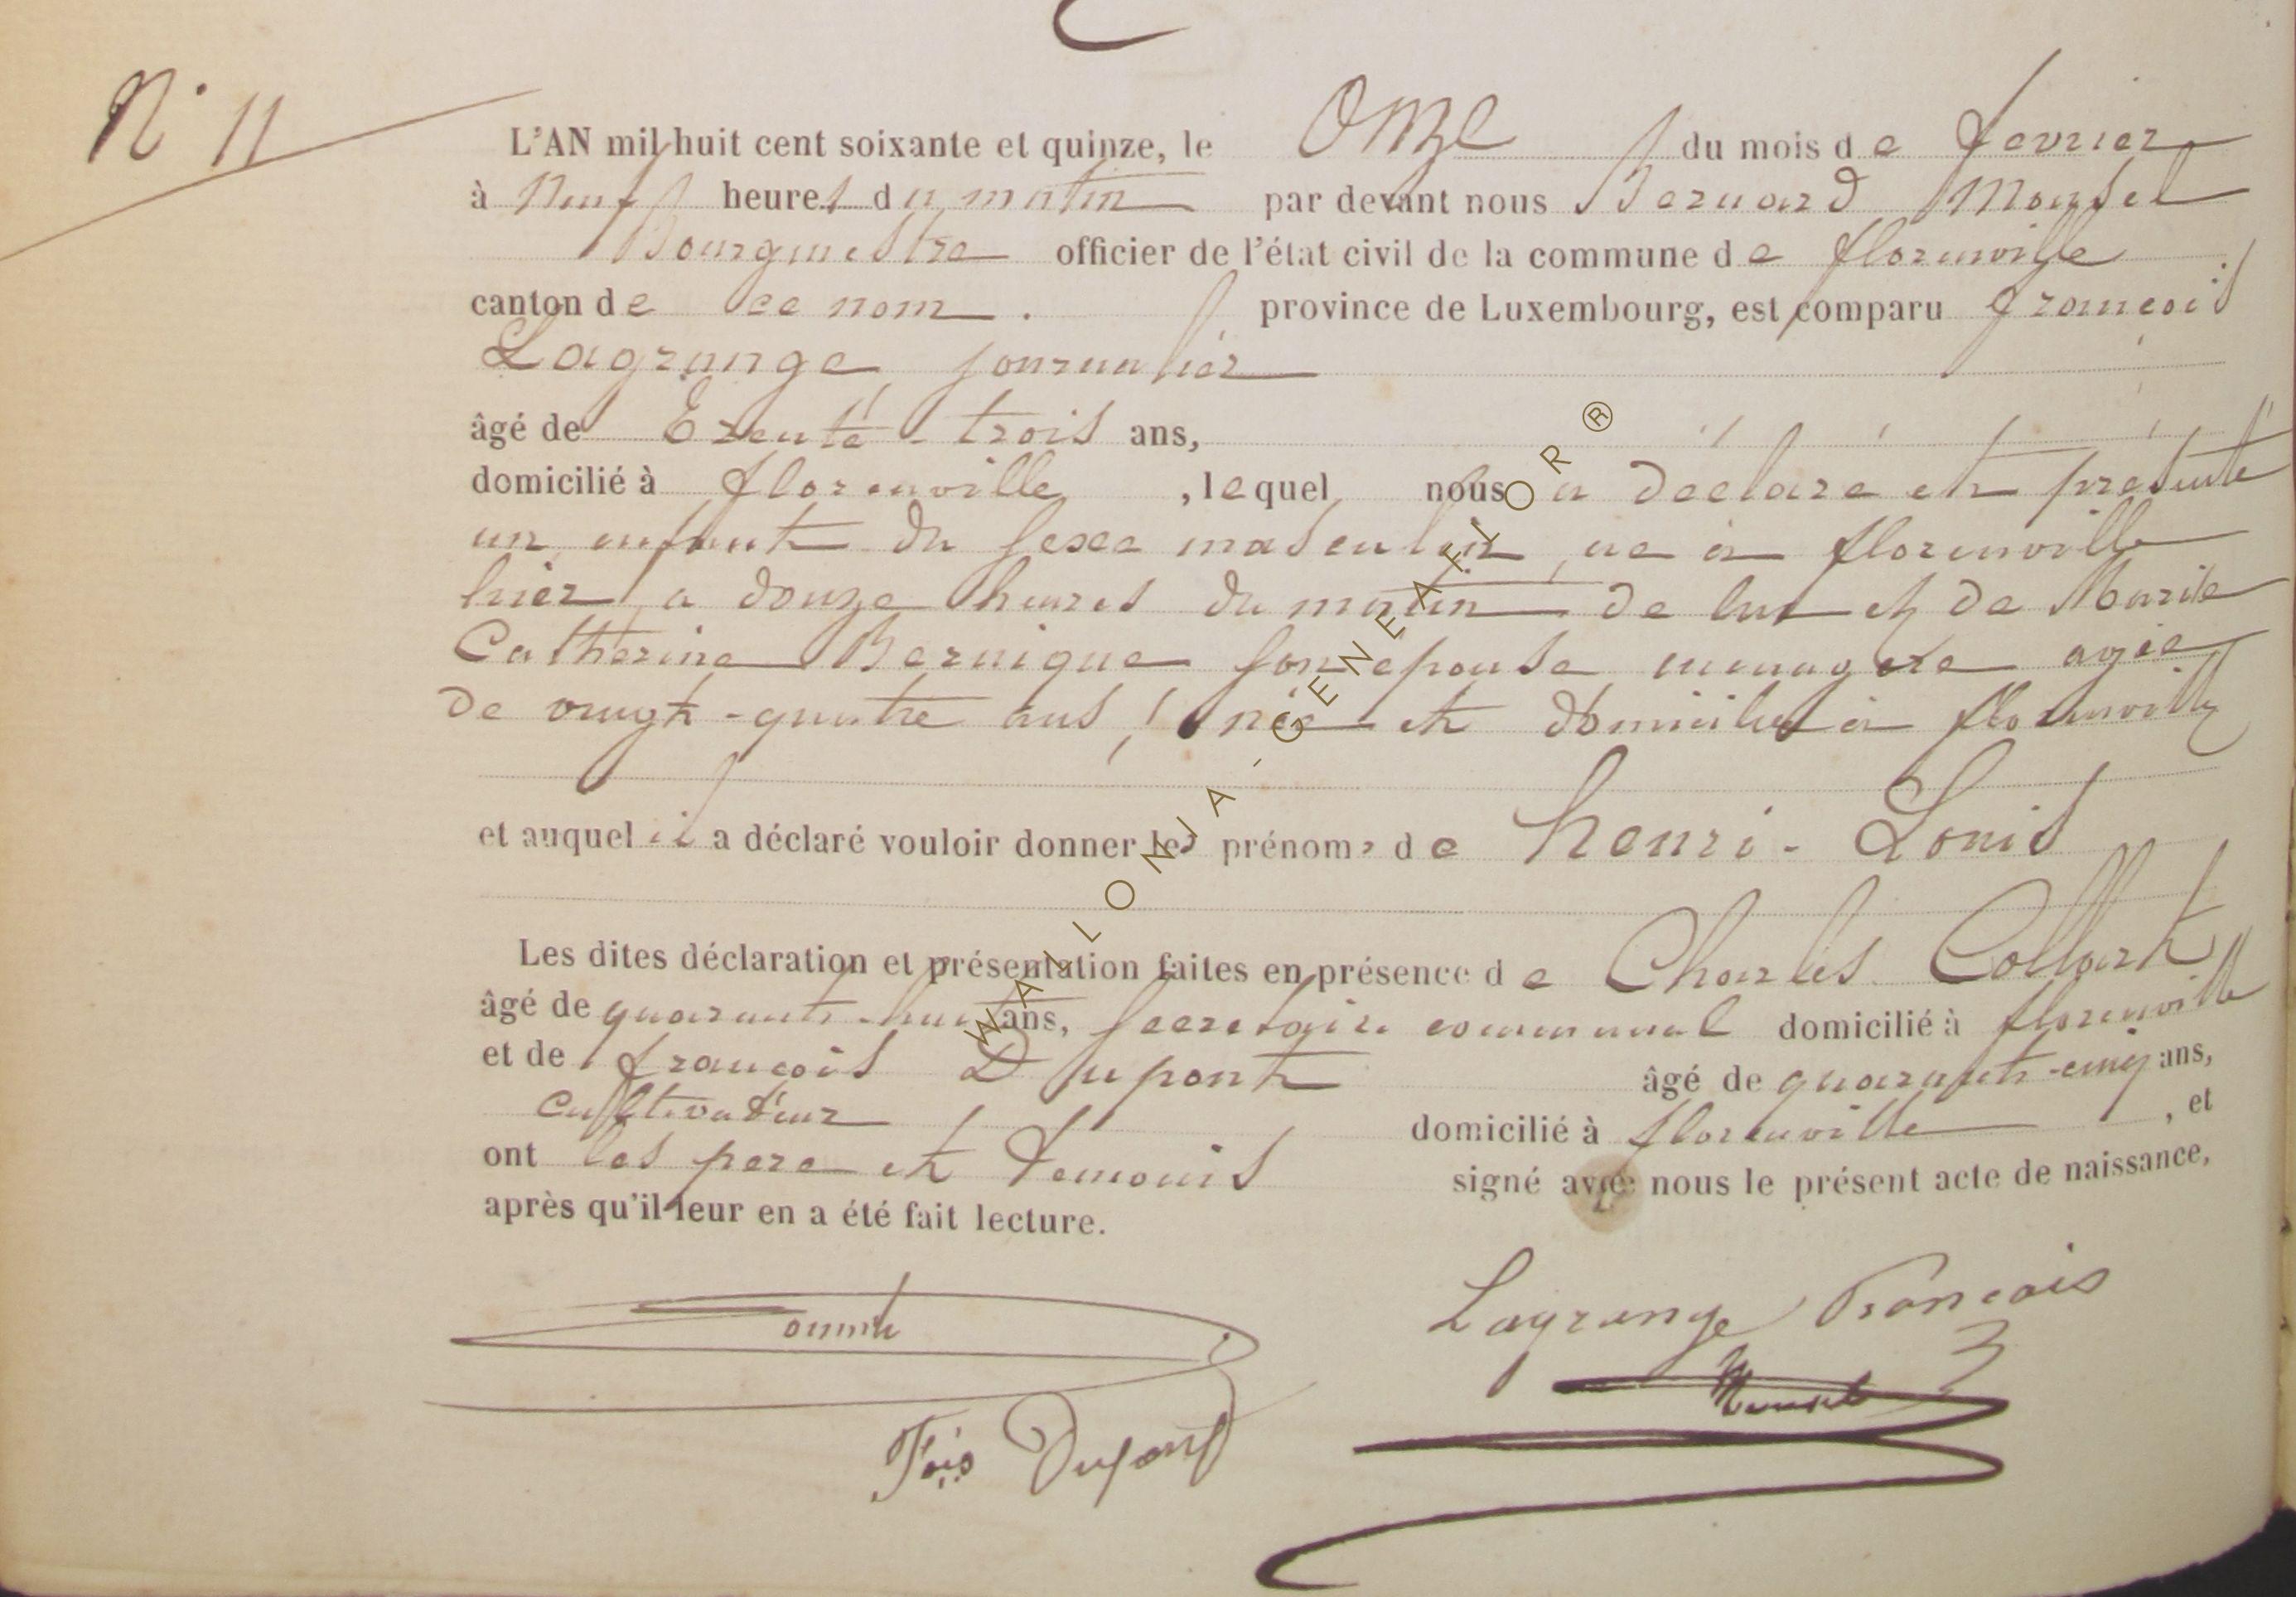 N° 11
L'AN mil huit cent soixante et quinze, le Onze du mois de fevrier
à Neuf heures du matin par devant nous Bernard Mousel
Bourgmestre officier de l'état civil de la commune de florenville
canton de ce nom. province de Luxembourg, est comparu françois
Lagrange journalier
âgé de Trente-trois ans,
domicilié à florenville, lequel nous a déclaré et présenté
un enfant du sexe masculin, né à florenville
hier, a douze heures du matin de lui et de Marie
Catherine Bernique son epouse menagere agée
de vingt-quatre ans, née et domiciliée à florenville
et auquel il a déclaré vouloir donner les prénoms de henri-Louis
Les dites déclaration et présentation faites en présence de Charles Collart
âgé de quarante-huit ans, secretaire communal domicilié à florenville
et de françois Dupont âgé de quarante-cinq ans,
cultivateur domicilié à florenville, et
ont les pere et temoins signé avec nous le présent acte de naissance,
après qu'il leur en a été fait lecture.
Lagrange francois
Fçois Dupont
WALLONIA-GENEAFLOR ®